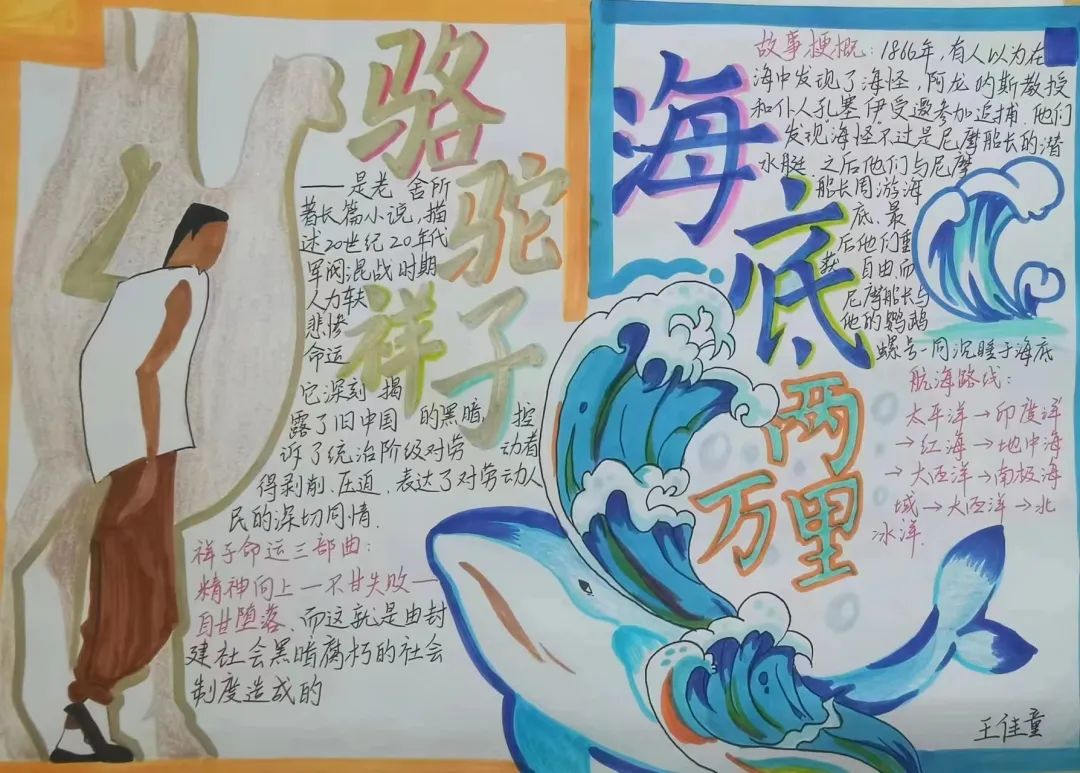 骆驼祥子
——是老舍所
著长篇小说,描
述20世纪20年代
军阀混战时期
人力车夫
悲惨
命运
它深刻揭
露了旧中国的黑暗,控
诉了统治阶级对劳动者
得剥削、压迫,表达了对劳动人
民的深切同情.
祥子命运三部曲:
精神向上—不甘失败—
自甘堕落,而这就是由封
建社会黑暗腐朽的社会
制度造成的
海底两万里
故事梗概:1866年,有人以为在
海中发现了海怪,阿龙的斯教授
和仆人孔塞伊受邀参加追捕,他们
发现海怪不过是尼摩船长的潜
水艇.之后他们与尼摩
船长周游海
底、最
后他们重
获自由而
尼摩船长与
他的鹦鹉
螺号一同沉睡于海底
航海路线:
太平洋→印度洋
→红海→地中海
→大西洋→南极海
域→大西洋→北
冰洋.
王佳童